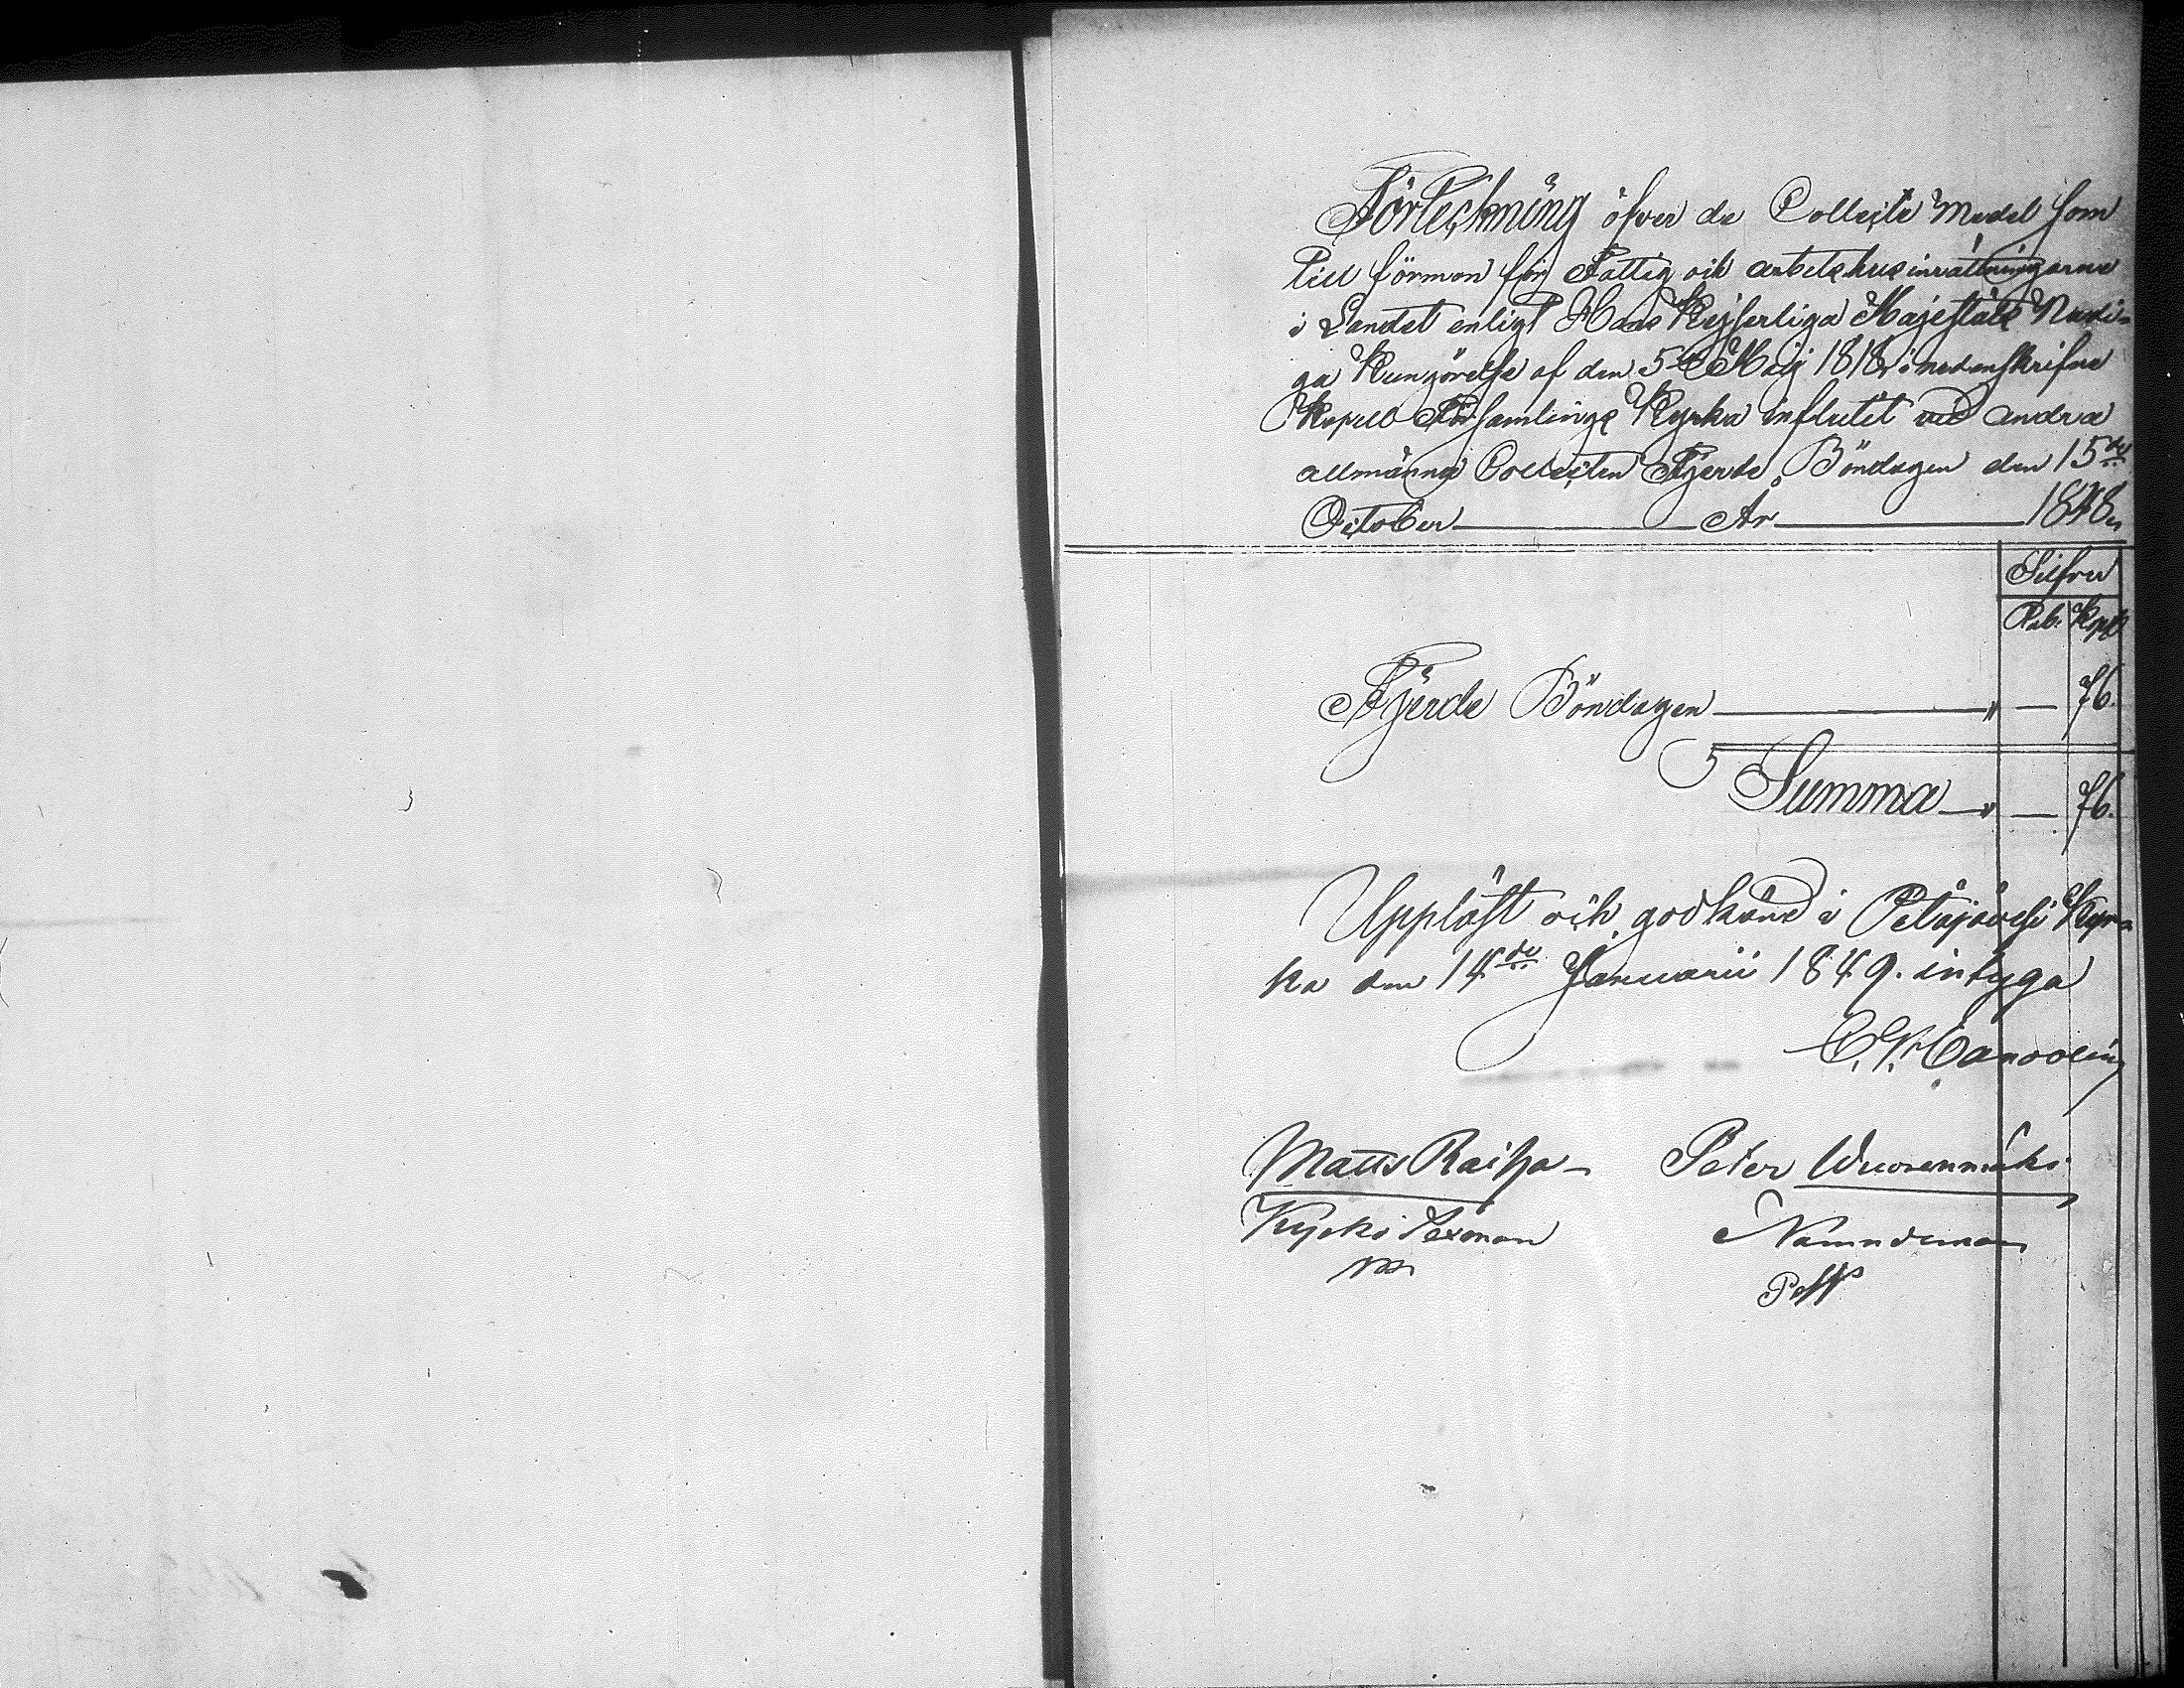 Förteckning öfver de Collecte Medel som
till förmon för Fattig och arbetshusinrättningarne
i Landet enligt Hans Kejserliga Majestäts Nådi-
ga Kungörelse af den 5te Maij 1818 i nedanskrifne
Kapell Församlings Kyrka influtit vid andra
allmänna Collecten Fjerde Böndagen den 15de
October År 1848
Silfver
Rub. Kopk
Fjerde Böndagen " — 76.
Summa " — 76.
Uppläst och godkänd i Petäjävesi Kyr-
ka den 14de Januarii 1849. intyga
Matts Raiha
Peter Wuorenmäki
Kyrko Sexman
Nämndeman